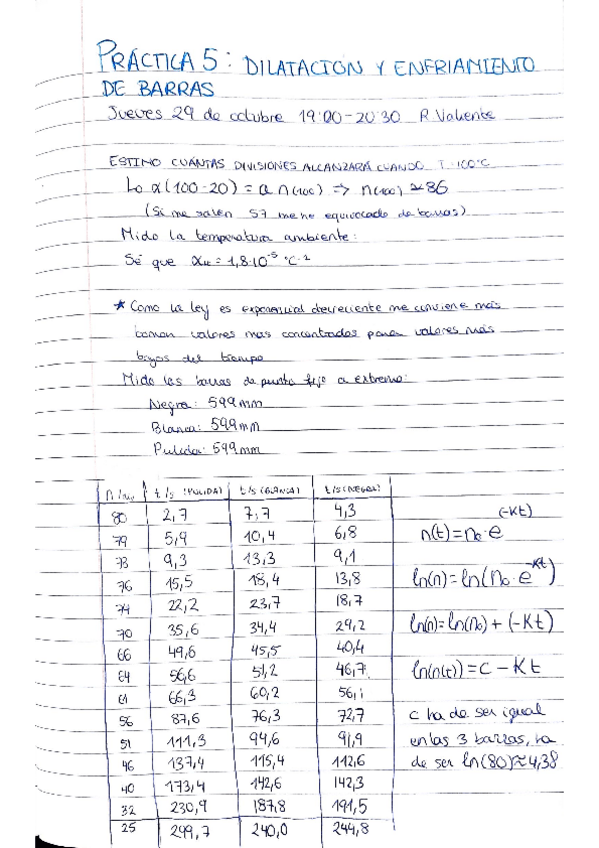 PRÁCTICA 5: DILATACION Y ENFRIAMIENTO
DE BARRAS
Jueves 29 de octubre 19:00-20:30 R Valiente
ESTIMO CUANTAS DIVISIONES ALCANZARÁ CUANDO T=100°C
Lo α(100-20) = a n(100) => n(100) ≃ 86
(Si me salen 57 me he equivocado de barras)
Mido la temperatura ambiente:
Sé que = 1,8·10⁻⁵ °C
* Como la ley es exponencial decreciente me conviene más
tomar valores mas concentrados para valores más
bajos del tiempo
Mido las barras de punto fijo a extremo:
Negra: 599mm
Blanca: 599mm
Pulida: 599mm
t/s (PULIDA) t/s (BLANCA) t/s (NEGRA)
80 2,7 7,7 4,3
79 5,9 10,4 6,8
9,3 13,3 9,1
76 15,5 18,4 13,8
74 22,2 23,7 18,7
70 35,6 34,4 29,2
66 49,6 45,5 40,4
64 56,6 51,2 46,7
61 66,3 60,2 56,1
56 87,6 76,3 72,7
51 111,3 94,6 91,9
46 137,4 115,4 112,6
40 173,4 142,6 142,3
32 230,9 187,8 191,5
25 299,7 240,0 244,8
n(t)=n₀·e (-Kt)
ln(n)=ln(n₀·e^-Kt)
ln(n)=ln(n₀)+(-Kt)
ln(n(t))=c-Kt
c ha de ser igual
en las 3 barras, ha
de ser ln(80)≈4,38